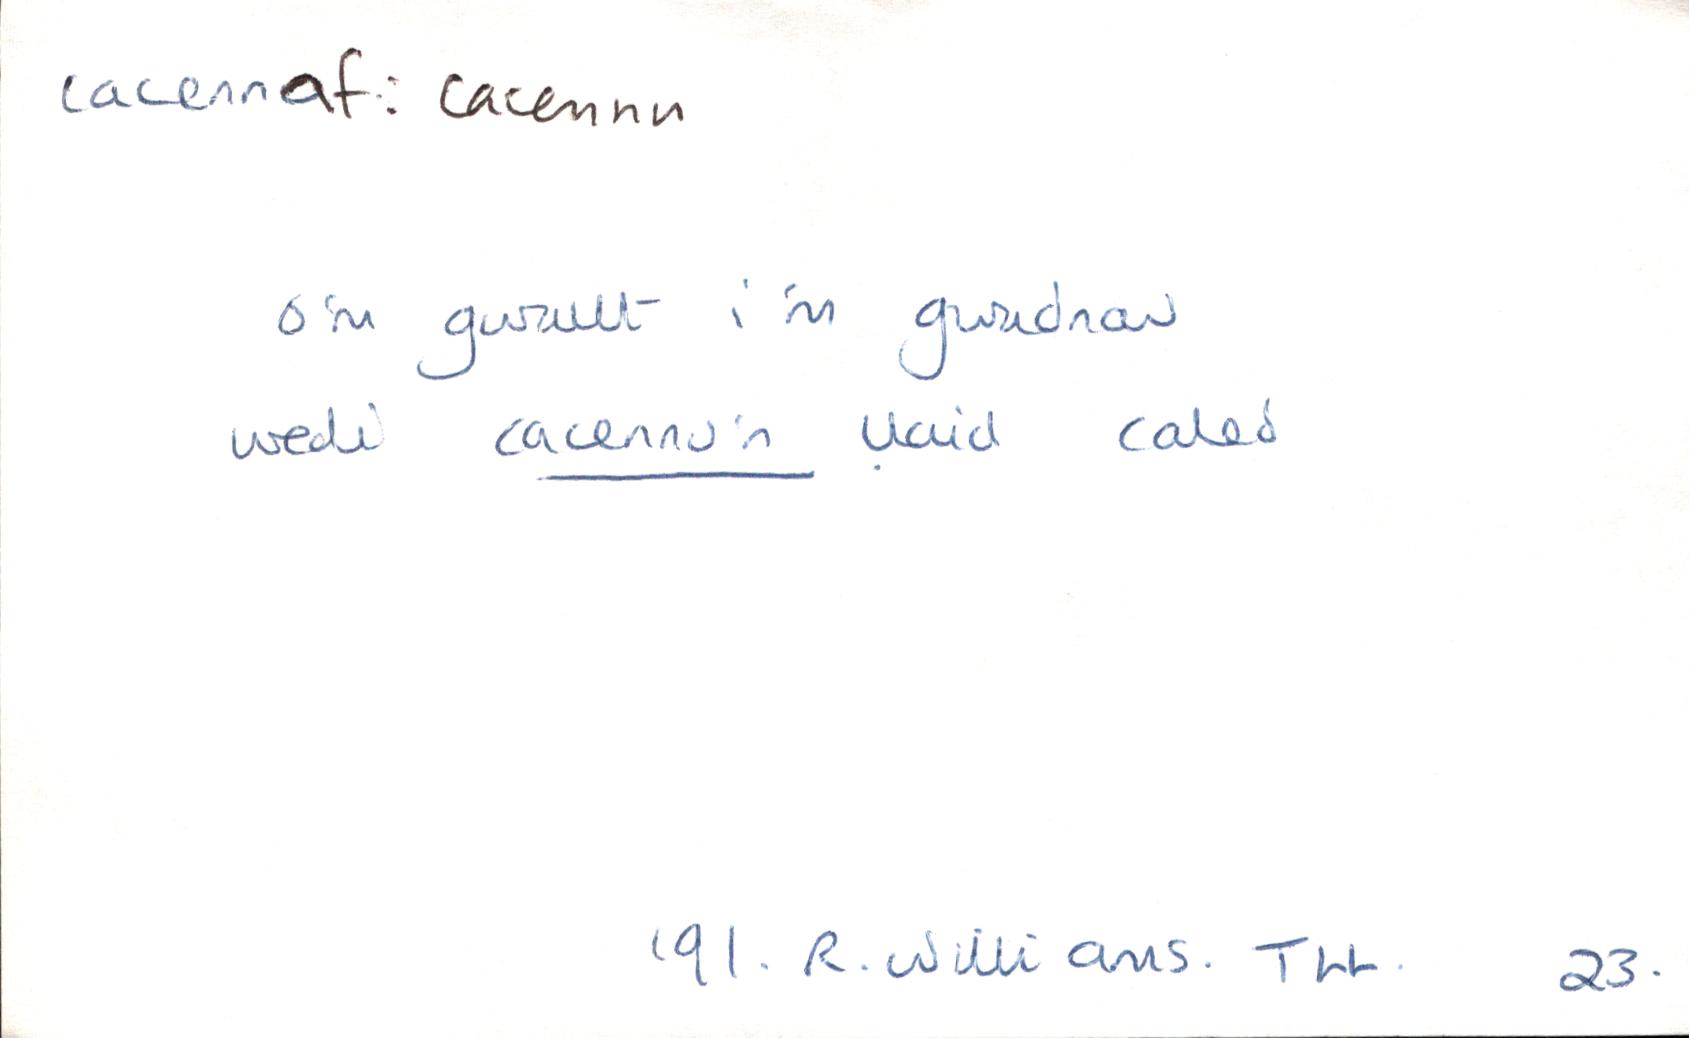 cacennaf: cacennu
o'm gwallt i'm gwadnau
wedi cacennu'n llaid caled
'91. R. Williams. TLL. 23.